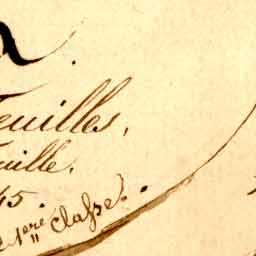 feuilles,
feuille.
45
1ere classe.